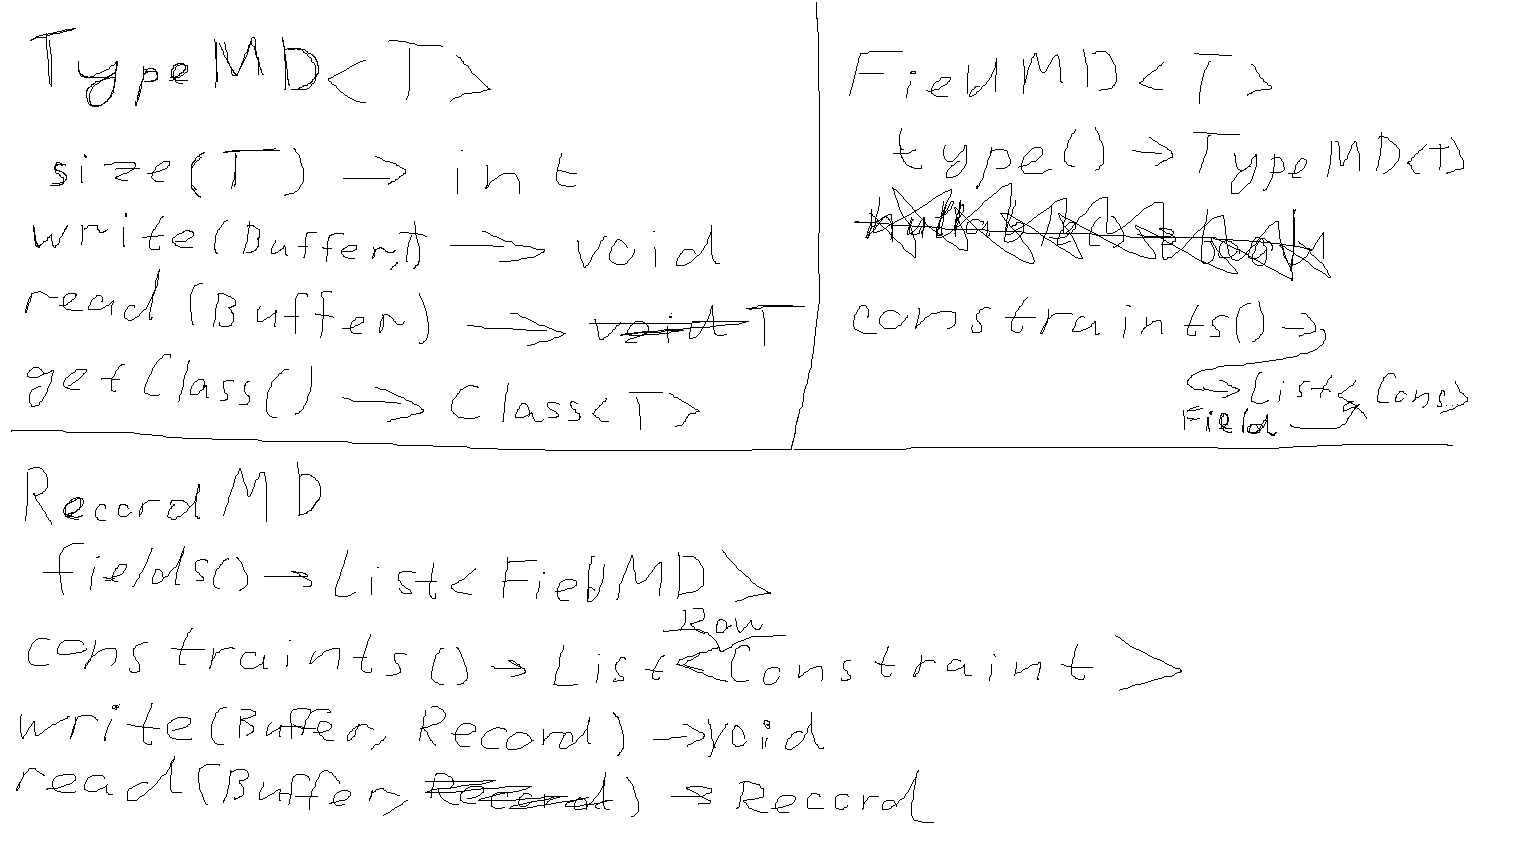 TypeMD<T>
size(T) → int
write(Buffer,T) → void
read(Buffer) → void T
getClass() → Class<T>
FieldMD<T>
type() → TypeMD<T>
constraints() →
→ List< Cons>
Field
RecordMD
fields() → List<FieldMD>
Row
constraints() → List<Constraint>
write(Buffer, Record) → void
read(Buffer, Record) → Record